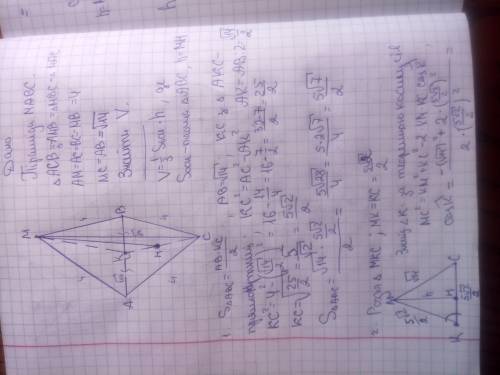 Дано
Піраміда MABC.
ΔACB = ΔAMB = ΔMBC = ΔAMC
AM=AC=BC=MB=4
MC=AB=√14
Знайти V.
V=1/3 S осн · h, де
S осн - площа ΔABC, h=MH
M
4
4
A
B
K
H
4
4
C
1. SΔABC = AB·KC/2, AB=√14, KC з ΔAKC -
прямокутний. KC²=AC²-AK², AK=AB:2=√14/2
KC²=4²-(√14/2)²=16-14/4=16-7/2=(32-7)/2=25/2
KC=√(25/2)=5/√2=5√2/2
SΔABC=(√14·5√2/2)/2=5√28/4=5·2√7/4=5√7/2
2. Розгл. ΔMKC, MK=KC=5√2/2
M
5√2/2
√14
h
K
H
C
5√2/2
Знайд. ∠K за теоремою косинусів
MC²=MK²+KC²-2·MK·KC·cosK
cosK=(-(√14)²+2·(5√2/2)²)/(2·(5√2/2)²)=